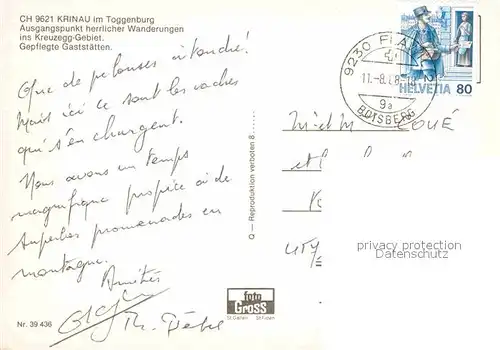 CH 9621 KRINAU im Toggenburg
Ausgangspunkt herrlicher Wanderungen
ins Kreuzegg-Gebiet.
Gepflegte Gaststätten.
Que de pelouses à tondre!
Mais ici ce sont les vaches
qui s'en chargent.
Nous avons un temps
magnifique propice à de
superbes promenades en
montagne.
Amitiés
Nr. 39 436
foto
GROSS
St.Gallen St.Fiden
Q — Reproduktion verboten 8
9230
11.-8.
9a
BOTSBERG
HELVETIA 80
privacy protection
Datenschutz